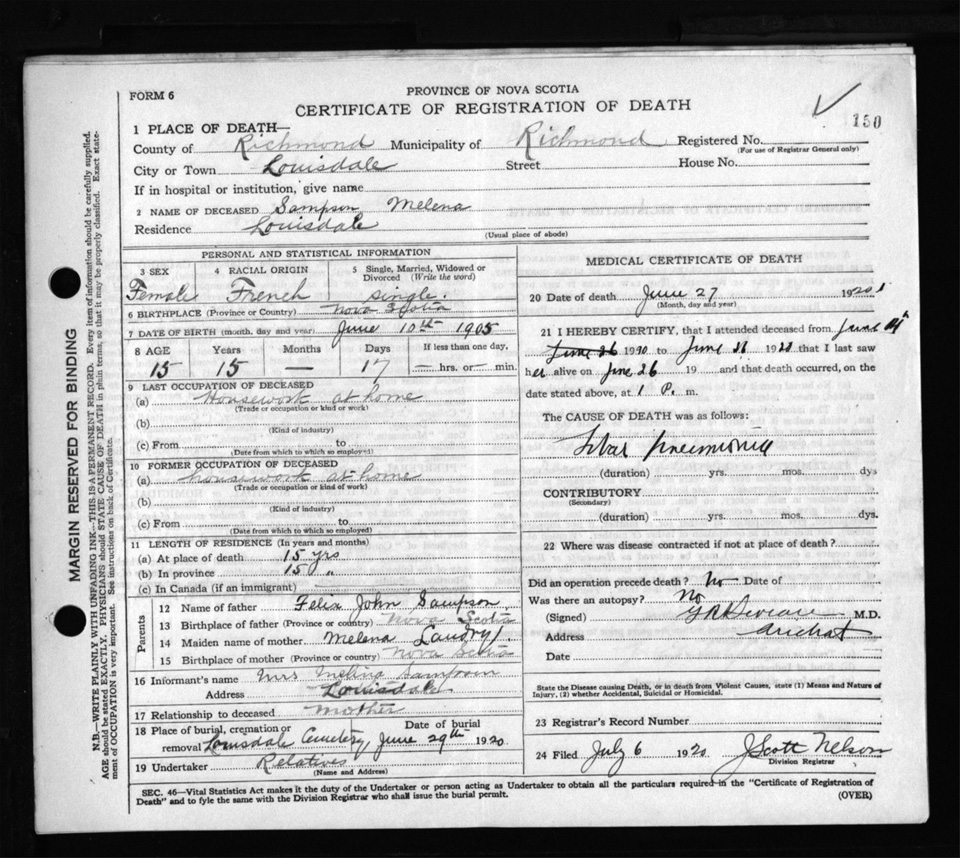 FORM 6
PROVINCE OF NOVA SCOTIA
CERTIFICATE OF REGISTRATION OF DEATH
150
1 PLACE OF DEATH—
County of Richmond Municipality of Richmond Registered No.
(For use of Registrar General only)
City or Town Louisdale Street House No.
If in hospital or institution, give name
2 NAME OF DECEASED Sampson Melena
Residence Louisdale
(Usual place of abode)
PERSONAL AND STATISTICAL INFORMATION
3 SEX 4 RACIAL ORIGIN 5 Single, Married, Widowed or Divorced (Write the word)
Female French Single.
6 BIRTHPLACE (Province or Country) Nova Scotia
7 DATE OF BIRTH (month, day and year) June 10th 1905
8 AGE Years Months Days If less than one day,
15 15 — 17 — hrs. or — min.
9 LAST OCCUPATION OF DECEASED
(a) Housework at home
(Trade or occupation or kind or work)
(b)
(Kind of industry)
(c) From to
(Date from which to which so employed)
10 FORMER OCCUPATION OF DECEASED
(a) housework at home
(Trade or occupation or kind of work)
(b)
(Kind of industry)
(c) From to
(Date from which to which so employed)
11 LENGTH OF RESIDENCE (In years and months)
(a) At place of death 15 yrs
(b) In province 15 "
(c) In Canada (if an immigrant)
Parents
12 Name of father Felix John Sampson
13 Birthplace of father (Province or country) Nova Scotia
14 Maiden name of mother Melena Landry
15 Birthplace of mother (Province or country) Nova Scotia
16 Informant's name Mrs Melina Sampson
Address Louisdale
17 Relationship to deceased Mother
18 Place of burial, cremation or removal Date of burial
Louisdale Cemetery, June 29th 1920.
19 Undertaker Relatives
(Name and Address)
MEDICAL CERTIFICATE OF DEATH
20 Date of death June 27 1920
(Month, day and year)
21 I HEREBY CERTIFY, that I attended deceased from June
June 26 1920 to June 26 1920 that I last saw
her alive on June 26 19 and that death occurred, on the
date stated above, at 1 P. m.
The CAUSE OF DEATH was as follows:
Lobar pneumonia
(duration) yrs. mos. dys
CONTRIBUTORY
(Secondary)
(duration) yrs. mos. dys.
22 Where was disease contracted if not at place of death?
Did an operation precede death? No Date of
Was there an autopsy? No
(Signed) M.D.
Address Arichat
Date
State the Disease causing Death, or in death from Violent Causes, state (1) Means and Nature of
Injury, (2) whether Accidental, Suicidal or Homicidal.
23 Registrar's Record Number
24 Filed July 6 1920 J Scott Nelson
Division Registrar
SEC. 46—Vital Statistics Act makes it the duty of the Undertaker or person acting as Undertaker to obtain all the particulars required in the "Certificate of Registration of
Death" and to fyle the same with the Division Registrar who shall issue the burial permit.
(OVER)
MARGIN RESERVED FOR BINDING
N.B.—WRITE PLAINLY WITH UNFADING INK—THIS IS A PERMANENT RECORD. Every item of information should be carefully supplied.
AGE should be stated EXACTLY. PHYSICIANS should STATE CAUSE OF DEATH in plain terms, so that it may be properly classified. Exact state-
ment of OCCUPATION is very important. See instructions on back of Certificate.